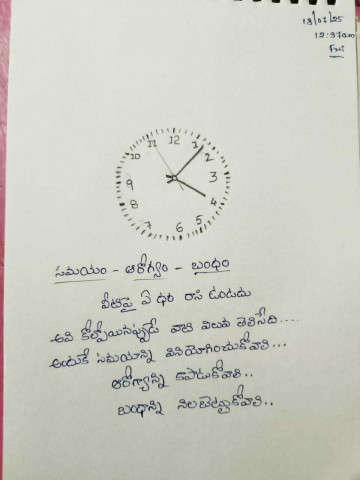 18/07/25
12:37am
Fri
12
1
2
3
4
5
6
7
8
9
10
11
సమయం - ఆరోగ్యం - బంధం
వీటిపై ఏ ధర రాసి ఉండదు
అవి కోల్పోయినప్పుడే వాటి విలువ తెలిసేది....
అందుకే సమయాన్ని వినియోగించుకోవాలి...
ఆరోగ్యాన్ని కాపాడుకోవాలి..
బంధాన్ని నిలబెట్టుకోవాలి..